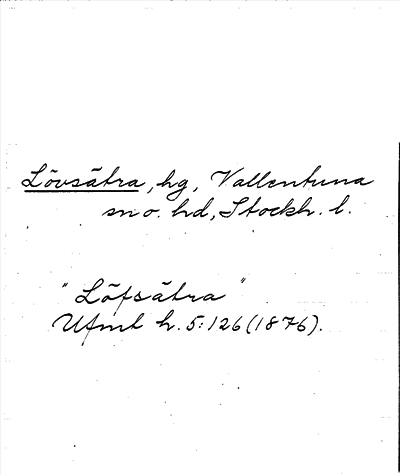 Lövsätra, hg, Vallentuna
sn o. hd, Stockh. l.
"Löfsätra"
Ufmt h. 5:126 (1876).